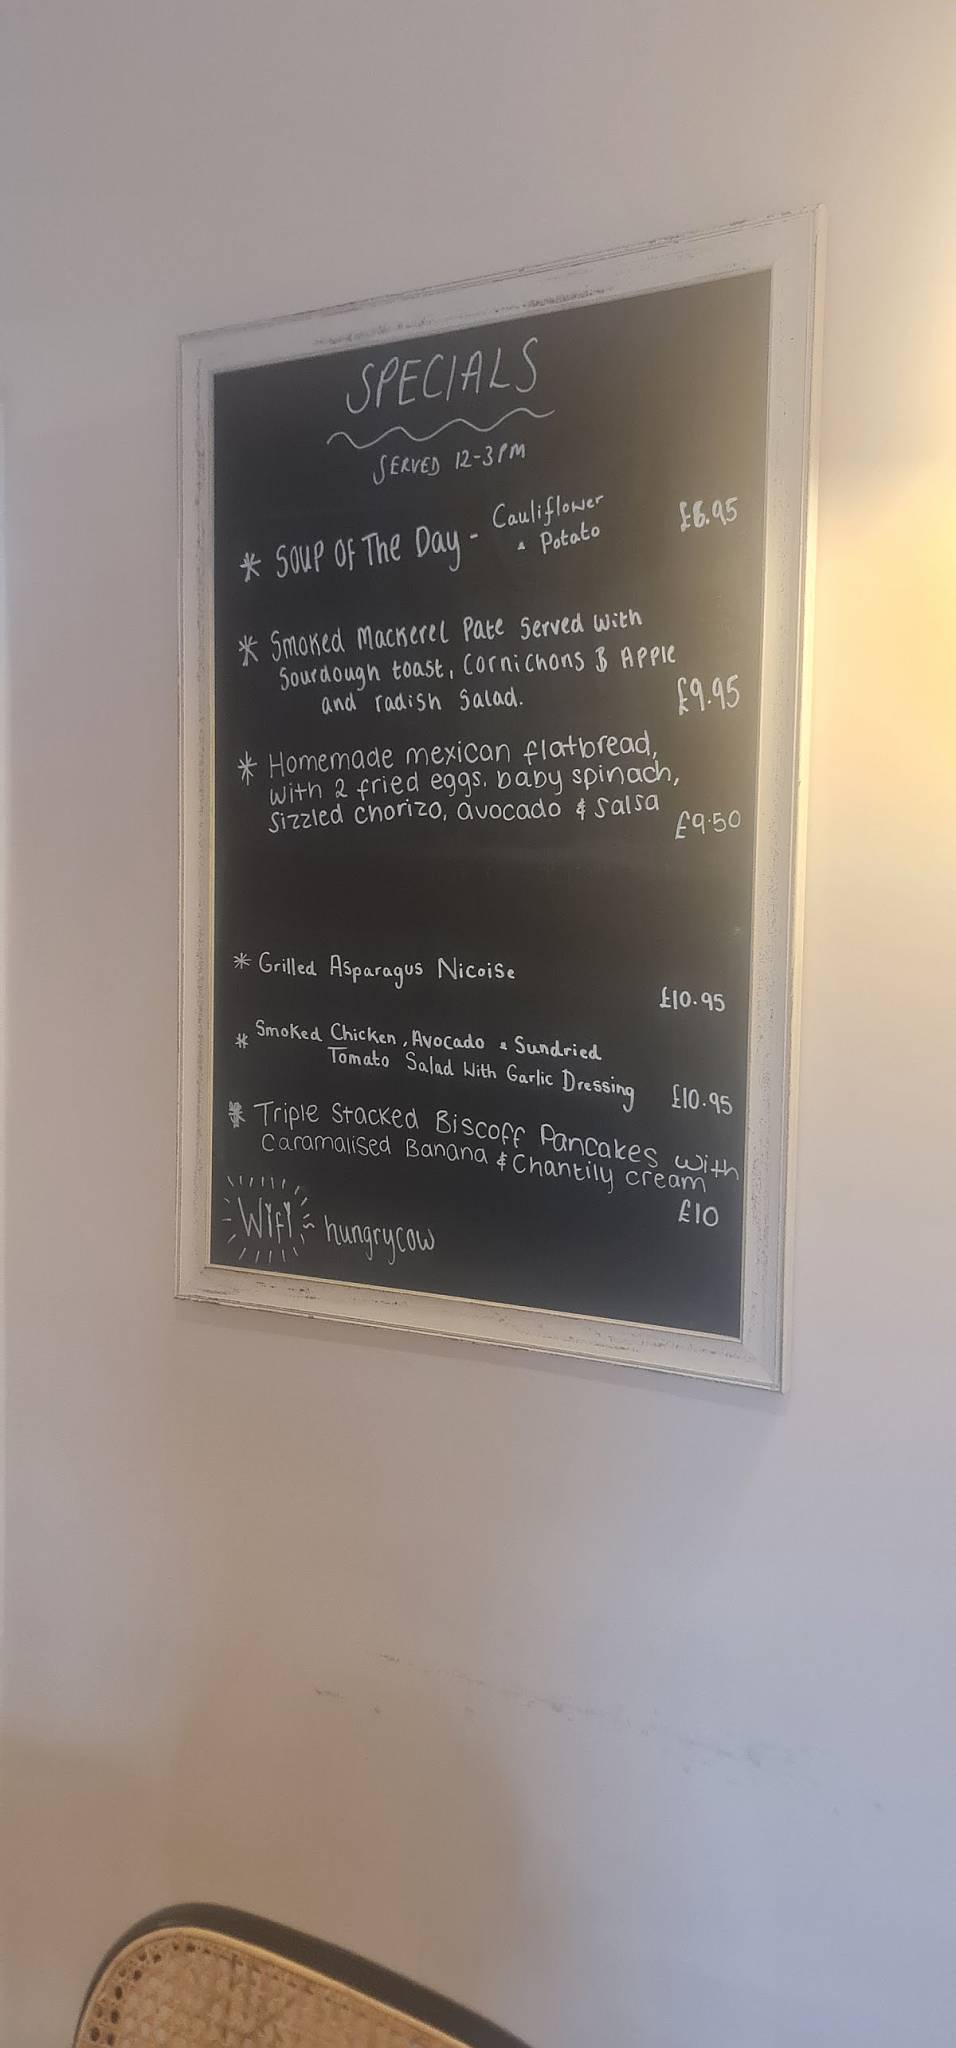 SPECIALS
SERVED 12-3PM
* SOUP OF The Day - Cauliflower
& Potato £6.95
* Smoked Mackerel Pate Served with
Sourdough toast, Cornichons & APPle
and radish Salad.
£9.95
* Homemade mexican flatbread,
with 2 fried eggs, baby spinach,
Sizzled chorizo, avocado & salsa
£9.50
* Grilled Asparagus Nicoise
£10.95
* Smoked Chicken, Avocado & Sundried
Tomato Salad With Garlic Dressing £10.95
* Triple Stacked Biscoff Pancakes with
Caramalised Banana & Chantily cream
£10
Wifi ~ hungrycow